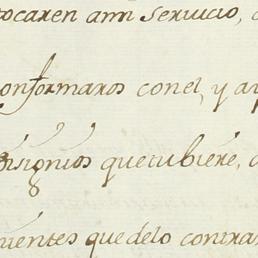 tocaren ami servicio,
conformaros conel, y a
disignios quetubiere,
quentes quedelo contra